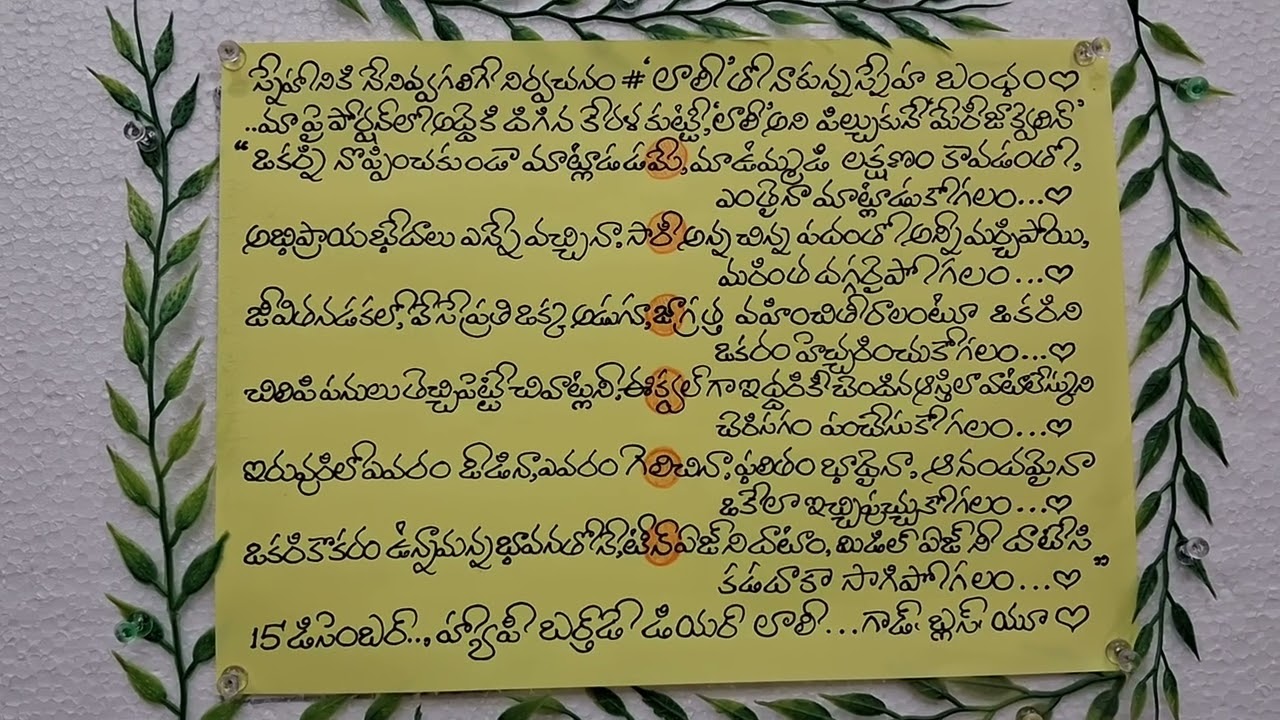 స్నేహానికి నేనివ్వగలిగే నిర్వచనం # 'లాలీ'తో నాకున్న స్నేహ బంధం♡
..మా పై పోర్షన్‌లో అద్దెకి దిగిన కేరళ కుట్టి, 'లాలీ' అని పిల్చుకునే 'మేరీ జాక్వెలిన్'
“ఒకర్ని నొప్పించకుండా మాట్లాడడమే, మా ఉమ్మడి లక్షణం కావడంతో,
ఎంతైనా మాట్లాడుకోగలం...♡
అభిప్రాయ భేదాలు ఎన్నొచ్చినా, సారీ అన్న చిన్న పదంతో అన్నీ మర్చిపోయి,
మరింత దగ్గరైపోగలం...♡
జీవిత నడకలో, వేసే ప్రతి ఒక్క అడుగూ, జాగ్రత్త వహించి తీరాలంటూ ఒకరిని
ఒకరం హెచ్చరించుకోగలం...♡
చిలిపి పనులు తెచ్చిపెట్టే చివాట్లనీ, ఈక్వల్ గా ఇద్దరికీ చెందిన ఆస్తిలా వాటాలేస్కుని
చెరిసగం పంచేసుకోగలం...♡
ఇరువురిలో ఎవరం ఓడినా, ఎవరం గెలిచినా, ఫలితం భాదైనా, ఆనందమైనా
ఒకేలా ఇచ్చిపుచ్చుకోగలం...♡
ఒకరికొకరం ఉన్నామన్న భావనతోనే, టీన్ ఏజ్ ని దాటాం, మిడిల్ ఏజ్ నీ దాటేసి
కడదాకా సాగిపోగలం...♡”
15 డిసెంబర్.., హ్యాపీ బర్త్‌డే డియర్ లాలీ...గాడ్ బ్లెస్ యూ ♡